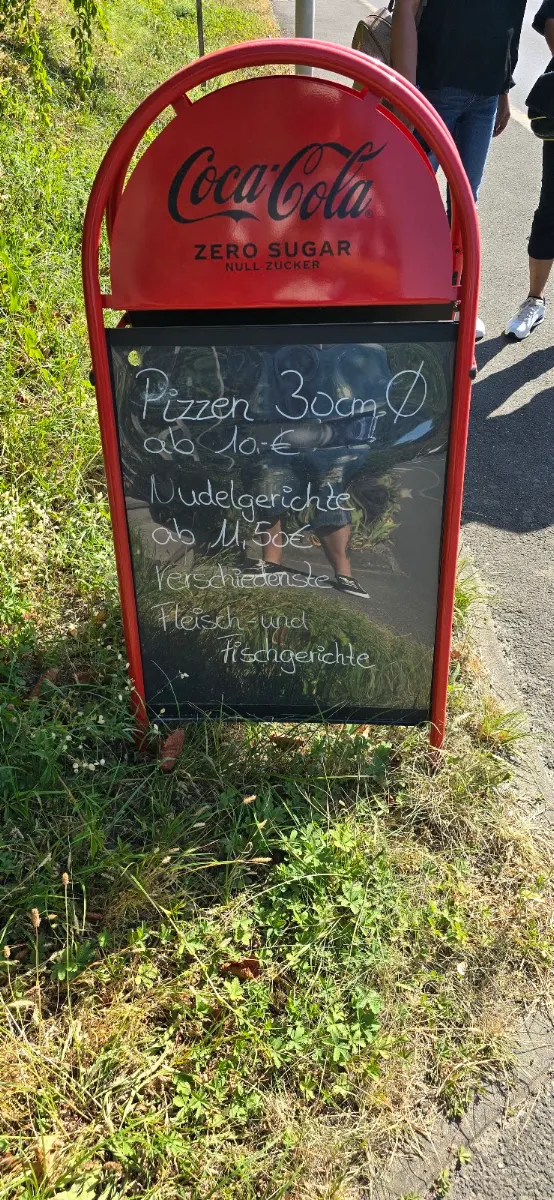 Coca-Cola
ZERO SUGAR
NULL ZUCKER
Pizzen 30cm Ø
ab 10.-€
Nudelgerichte
ab 11,50€
Verschiedenste
Fleisch-und
Fischgerichte